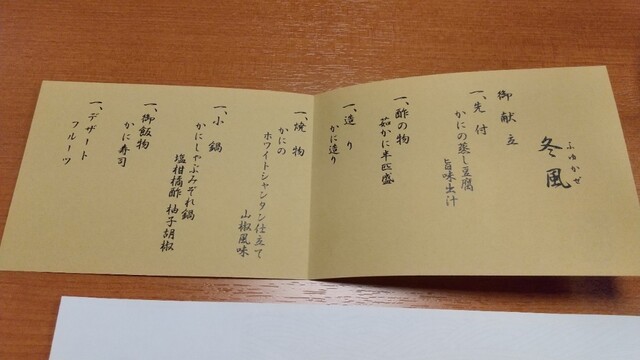 ふゆかぜ
冬風
御献立
一、先付
かにの蒸し豆腐
旨味出汁
一、酢の物
茹かに半匹盛
一、造り
かに造り
一、焼物
かにの
ホワイトシャンタン仕立て
山椒風味
一、小鍋
かにしゃぶみぞれ鍋
塩柑橘酢 柚子胡椒
一、御飯物
かに寿司
一、デザート
フルーツ